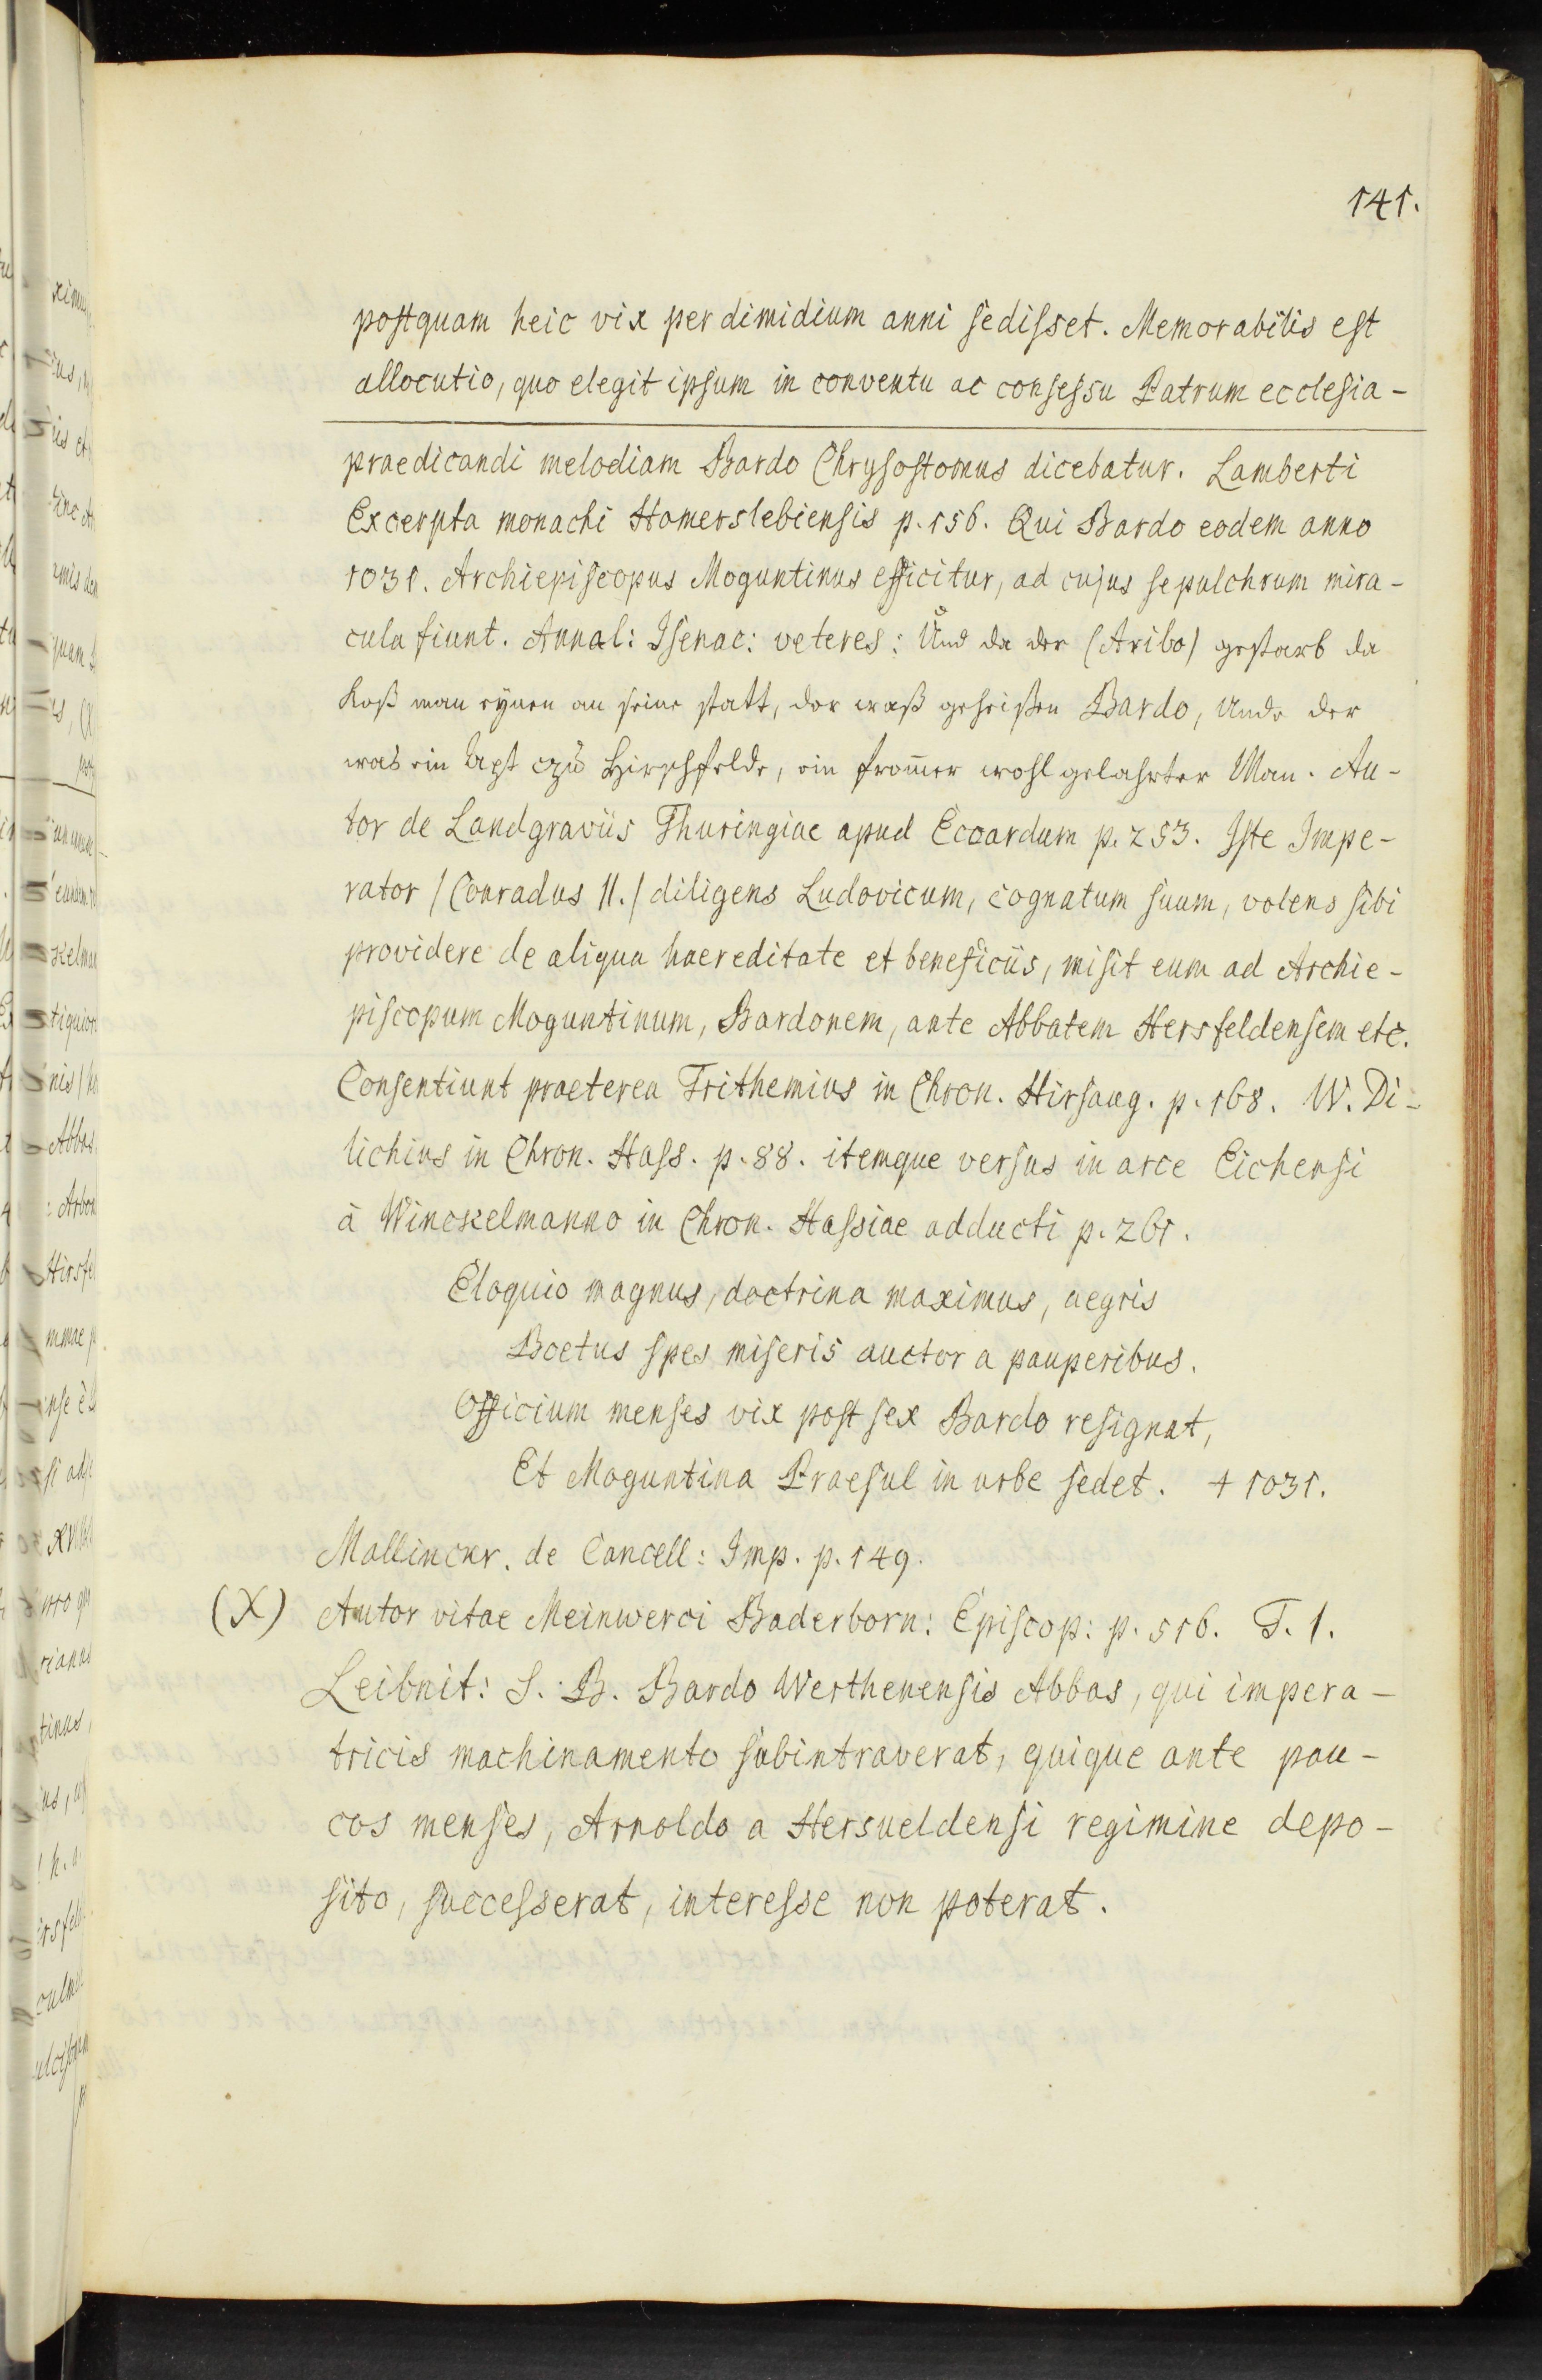 141.
postquam heic vix per dimidium anni sedisset. Memorabilis est
allocutio, quo elegit ipsum in conventu ac consessu Patrum ecclesia-
praedicandi melodiam Bardo Chrysostomus dicebatur. Lamberti
Excerpta monachi Hamerslebiensis p. 156. Qui Bardo eodem anno
1031. Archiepiscopus Moguntinus efficitur, ad cujus sepulchrum mira-
cula fiunt. Annal: Isenac: veteres: Und da der (Aribo) gestarb da
koß man eynen an seine statt, der waß geheißen Bardo, unde der
was ein Apt czu Hirschfelde, ein from̄er wohl gelahrter Man. Au-
tor de Landgraviis Thuringiae apud Eccardum p. 253. Iste Impe-
rator /Conradus II./ diligens Ludovicum, cognatum suum, volens sibi
providere de aliqua haereditate et beneficiis, misit eum ad Archie-
piscopum Moguntinum, Bardonem, ante Abbatem Hersfeldensem etc.
Consentiunt praeterea Trithemius in Chron. Hirsaug. p. 168. W. Di-
lichius in Chron. Hass. p. 88. itemque versus in arce Eichensi
à Winckelmanno in Chron. Hassiae adducti p. 261.
Eloquio magnus, doctrina maximus, aegris
Boetus spes miseris auctor a pauperibus.
Officium menses vix post sex Bardo resignat,
Et Moguntina Praesul in urbe sedet. † 1031.
Mallinckr. de Cancell: Imp. p. 149.
(X) Autor vitae Meinwerci Baderborn: Episcop: p. 516. T. 1.
Leibnit: S. B. Bardo Werthenensis Abbas, qui impera-
tricis machinamento subintraverat, quique ante pau-
cos menses, Arnoldo a Hersueldensi regimine depo-
sito, successerat, interesse non poterat.